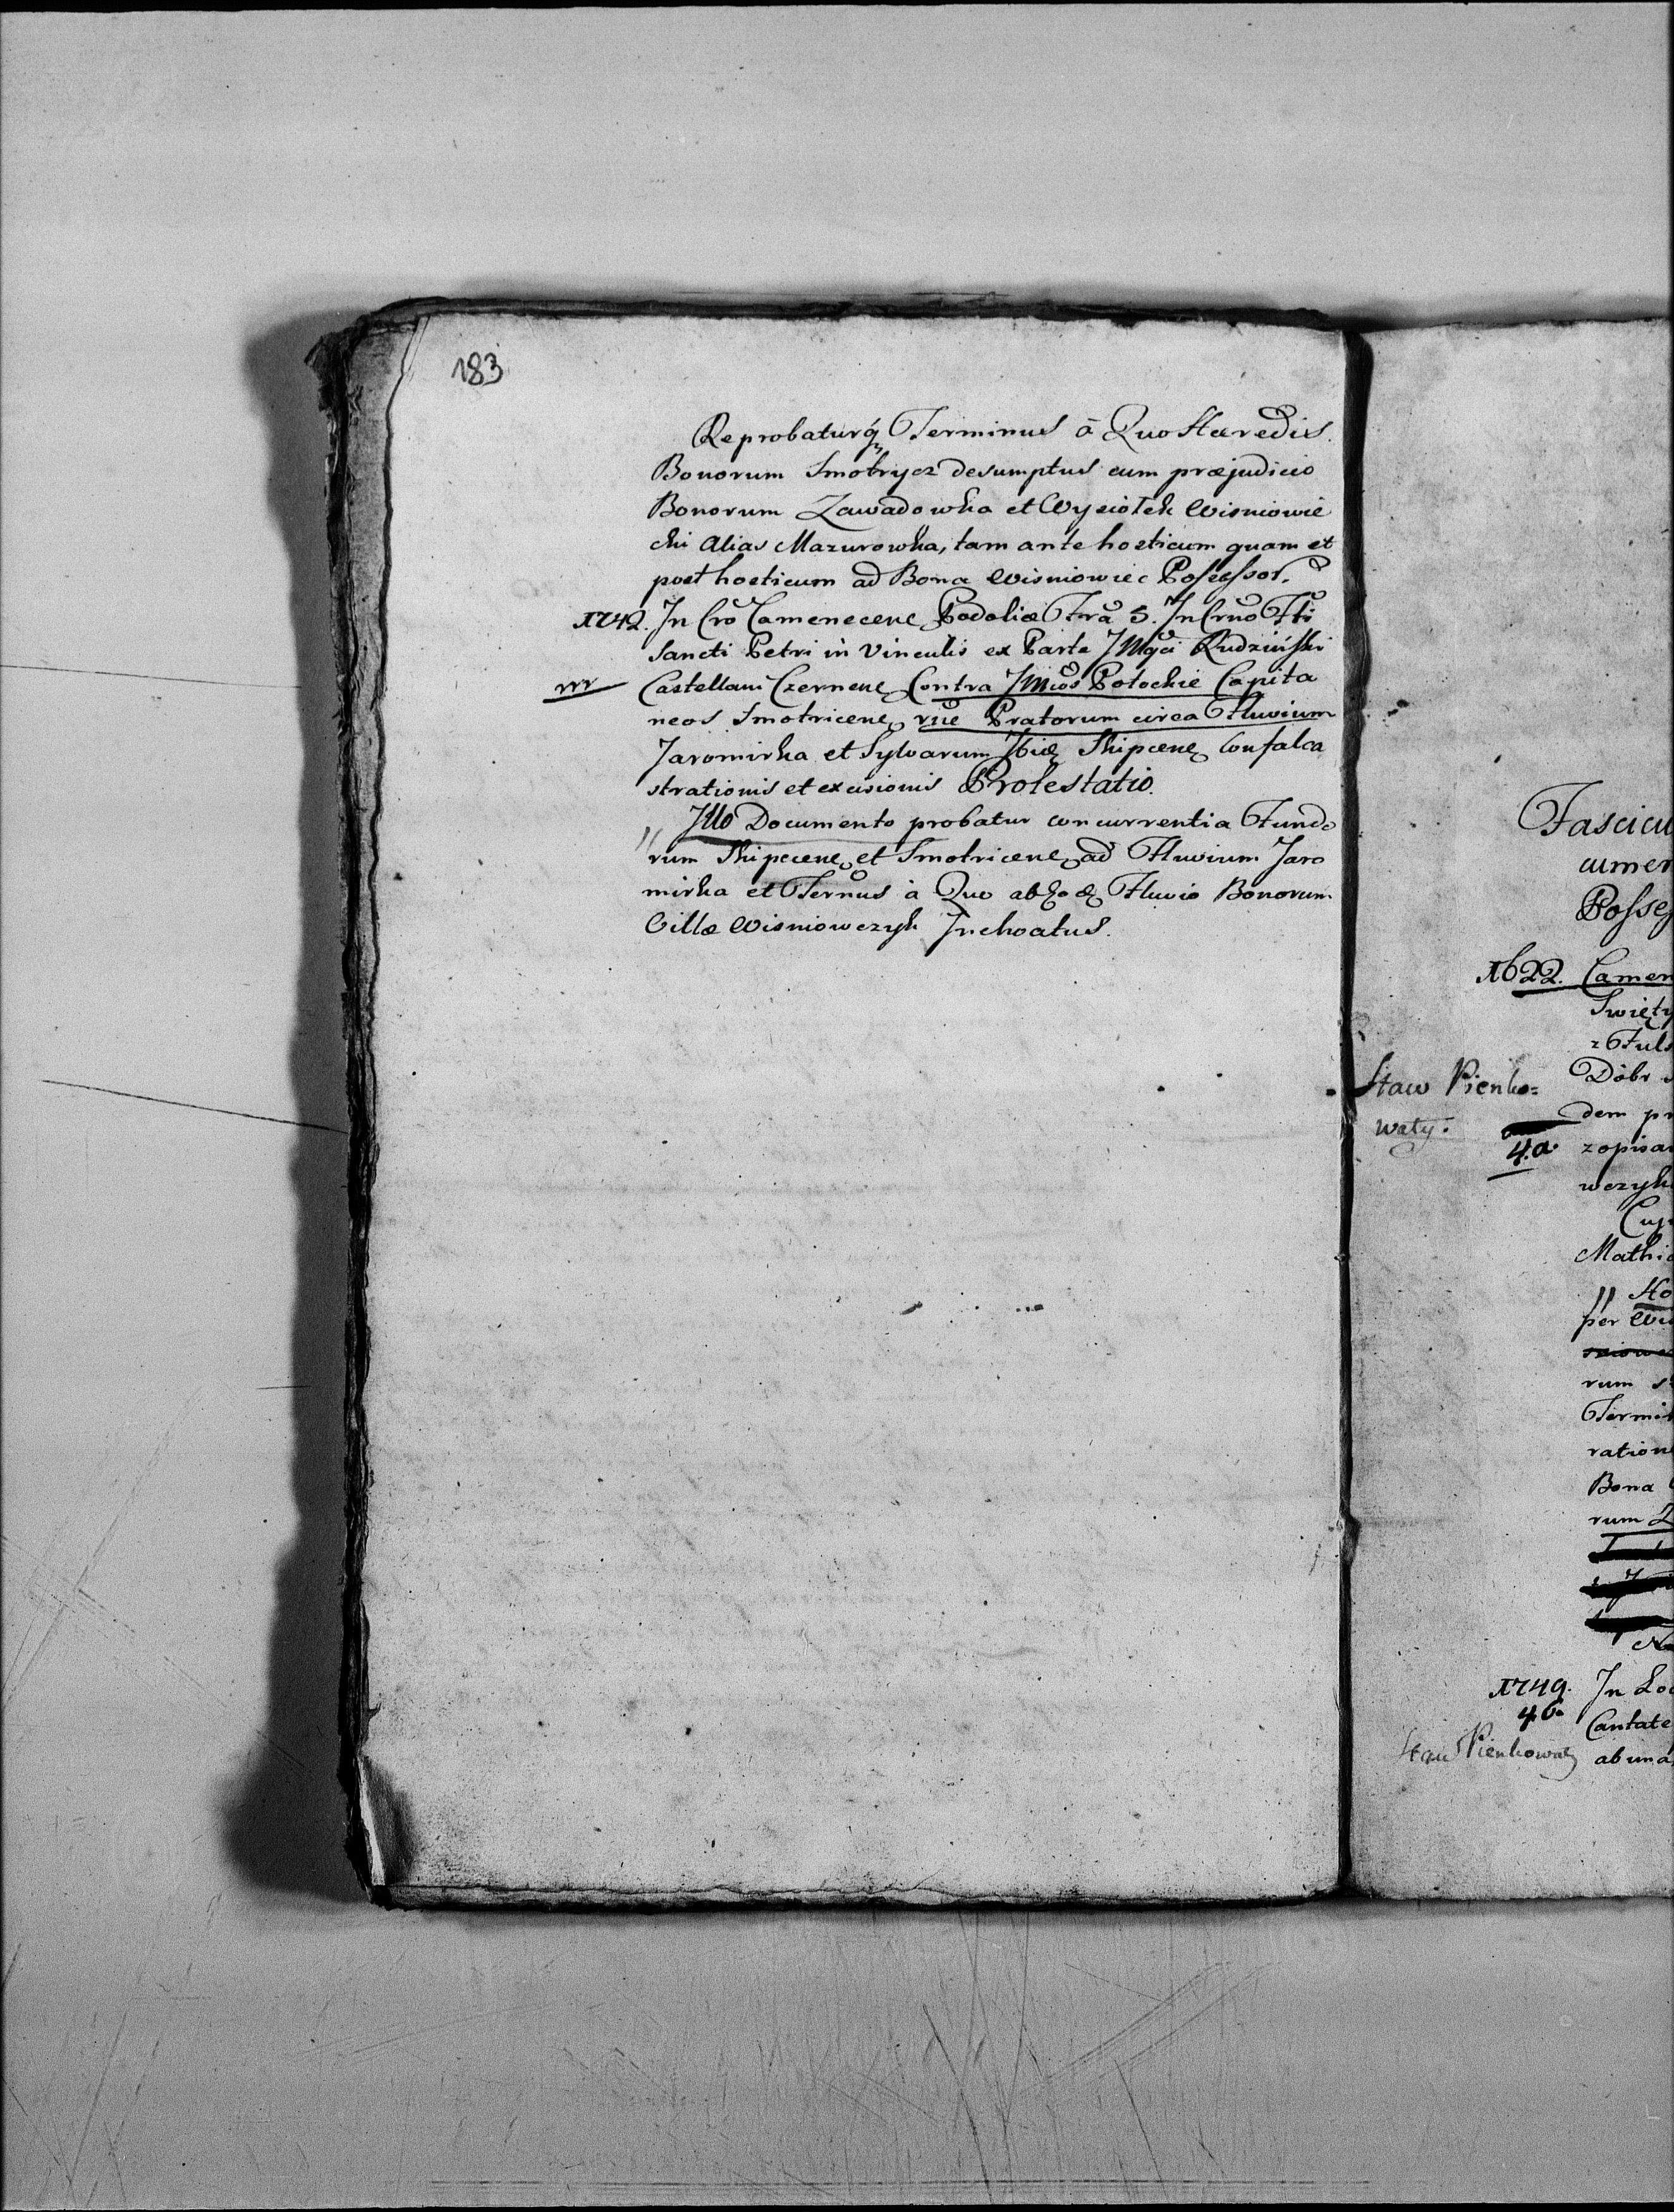 183
Reprobaturq Terminus à Quo Hæredis
Bonorum Smotrycz desumptus cum præjudicio
Bonorum Zawadowka et Wysiołek Wisniowie
cki Alias Mazurowka, tam ante hosticum quam et
post hosticum ad Bona Wisniowiec Possessor.
1742. In Cro Camenecene Podoliæ Fra 5. In Crno Fti
Sancti Petri in Vinculis ex Parte JMgci Rudziński
Castellani Czernene Contra JMcos Potockie Capita
neos Smotricene rne Pratorum circa Fluvium
Jaromirka et Sylvarum Ibid Skipcene Confalca
strationis et excisionis Protestatio.
" Illo Documento probatur concurrentia Fundo
rum Skipcene et Smotricene ad Fluvium Jaro
mirka et Ternus à Quo ab Fluvio Bonorum
Villæ Wisniowczyk Inchoatus.
Fascicu
cumen
Posse
1622. Camen
Swięty
z Ful
Dóbr
Staw Pienko=
waty.
dem pr
4.a. zopisa
wczyk
Cuj
Mathi
" Ho
per Wi
rum s
Termin
ration
Bona
rum Z
1749. In Lo
4.b. Cantate
Staw Pienkowaty ab una